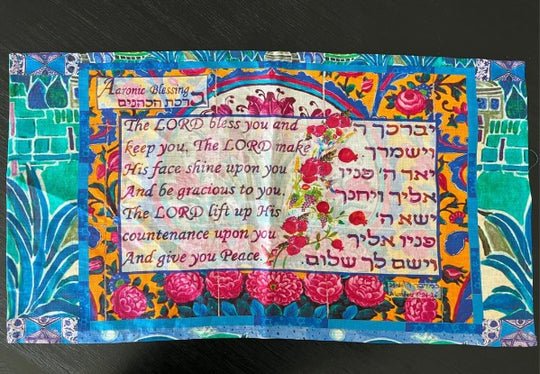 Aaronic Blessing
ברכת הכהנים
The LORD bless you and
keep you, The LORD make
His face shine upon you
And be gracious to you.
The LORD lift up His
countenance upon you
And give you Peace.
יברכך ה'
וישמרך
יאר ה' פניו
אליך ויחנך
ישא ה'
פניו אליך
וישם לך שלום.